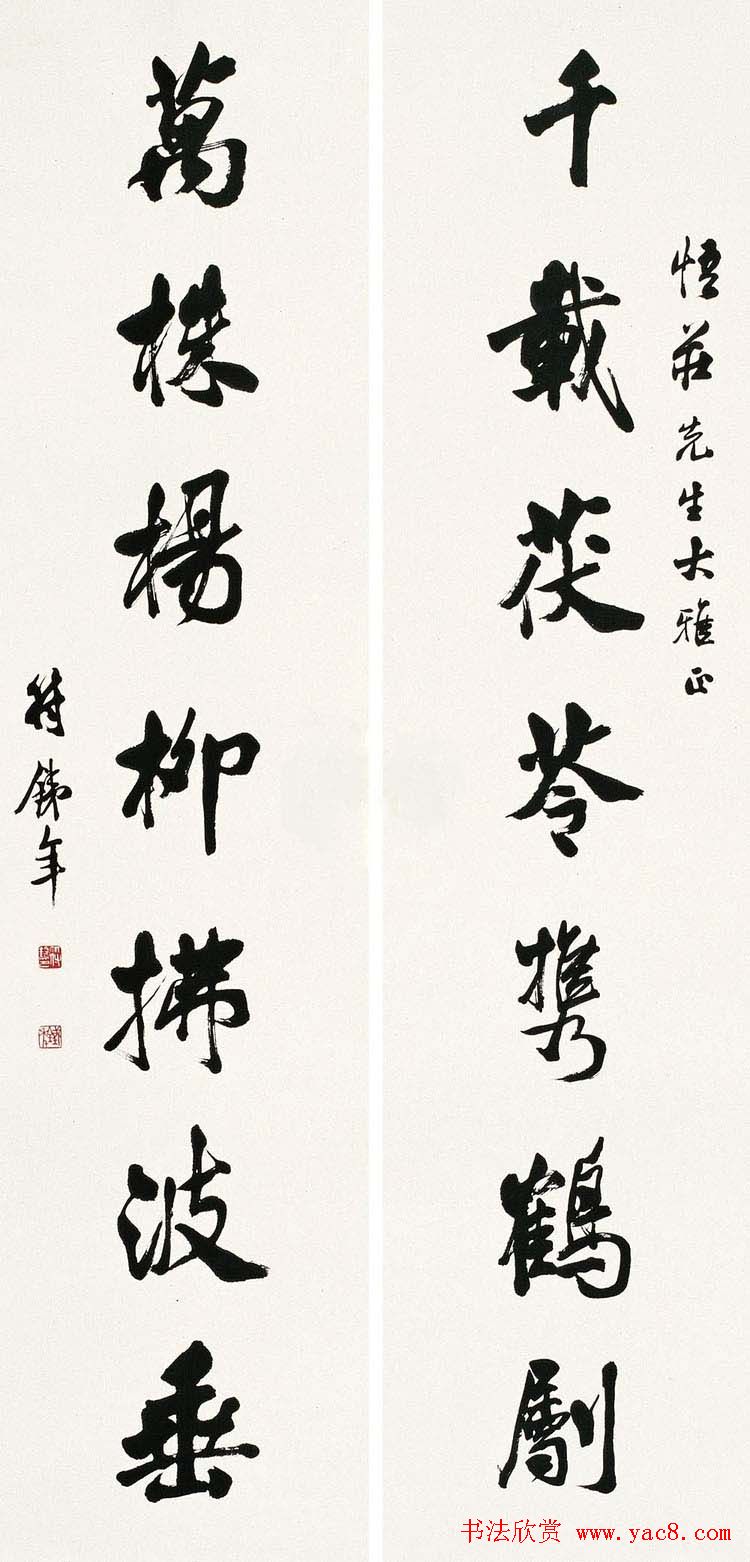 悟莊先生大雅正
千載茯苓携鶴劚
萬株楊柳拂波垂
符銕年
书法欣赏 www.yac8.com